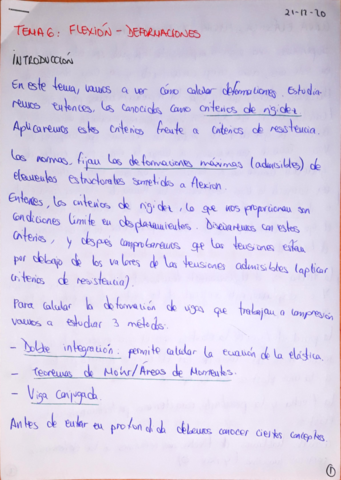 21-12-20
TEMA 6: FLEXIÓN - DEFORMACIONES
INTRODUCCIÓN
En este tema, vamos a ver cómo calcular deformaciones. Estudia-
remos entonces, los conocidos como criterios de rigidez.
Aplicaremos estos criterios frente a criterios de resistencia.
Las normas, fijan las deformaciones máximas (admisibles) de
elementos estructurales sometidos a flexión.
Entonces, los criterios de rigidez, lo que nos proporcionan son
condiciones límite en desplazamientos. Diseñaremos con estos
criterios, y después comprobaremos que las tensiones están
por debajo de los valores de las tensiones admisibles (aplicar
criterios de resistencia)
Para calcular la deformación de vigas que trabajan a compresión
vamos a estudiar 3 métodos:
- Doble integración: permite calcular la ecuación de la elástica.
- Teoremas de Mohr/Áreas de Momentos.
- Viga Conjugada
Antes de entrar en profundidad debemos conocer ciertos conceptos
1